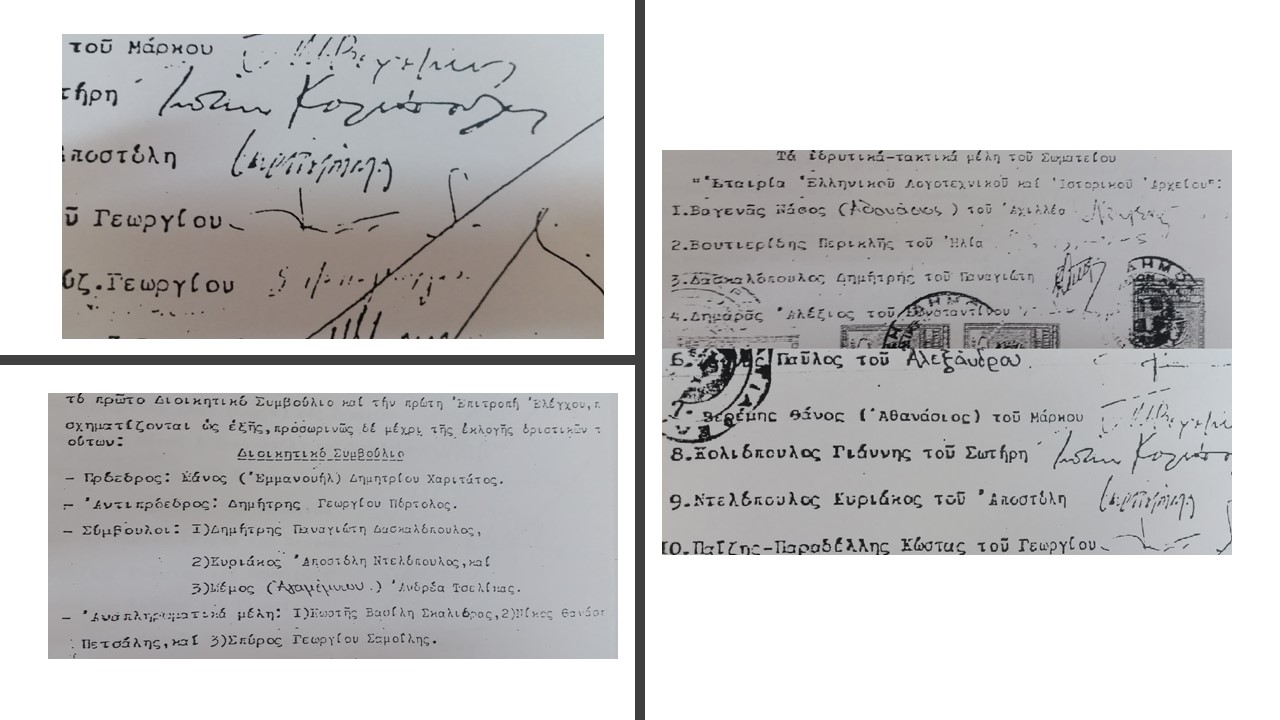 τοῦ Μάρκου
τήρη
Ἀποστόλη
ῦ Γεωργίου
υζ.Γεωργίου
τό πρῶτο Διοικητικό Συμβούλιο καί τήν πρώτη Ἐπιτροπή Ἐλέγχου,
σχηματίζονται ὡς ἑξῆς,προσωρινῶς δέ μέχρι τῆς ἐκλογῆς ὁριστικῶν τ
ούτων:
Διοικητικό Συμβούλιο
– Πρόεδρος: Μάνος (Ἐμμανουήλ) Δημητρίου Χαριτάτος.
– Ἀντιπρόεδρος: Δημήτρης Γεωργίου Πόρτολος.
– Σύμβουλοι: 1)Δημήτρης Παναγιώτη Δασκαλόπουλος,
2)Κυριάκος Ἀποστόλη Ντελόπουλος,καί
3)Μέμος (Ἀγαμέμνων) Ἀνδρέα Τσελίκας.
– Ἀναπληρωματικά μέλη: 1)Κωστῆς Βασίλη Σκαλιόρας,2)Νίκος Θανάση
Πετσάλης,καί 3)Σπύρος Γεωργίου Σαμοΐλης.
Τά ἱδρυτικά-τακτικά μέλη τοῦ Σωματείου
"Ἑταιρία Ἑλληνικοῦ Λογοτεχνικοῦ καί Ἱστορικοῦ Ἀρχείου":
1.Βαγενᾶς Νάσος (Ἀθανάσιος) τοῦ Ἀχιλλέα
2.Βουτιερίδης Περικλῆς τοῦ Ἠλία
3.Δασκαλόπουλος Δημήτρης τοῦ Παναγιώτη
4.Δημαρᾶς Ἀλέξιος τοῦ Κωνσταντίνου
6. Παῦλος τοῦ Ἀλεξάνδρου
Βερέμης Θάνος (Ἀθανάσιος) τοῦ Μάρκου
8.Κολιόπουλος Γιάννης τοῦ Σωτήρη
9.Ντελόπουλος Κυριάκος τοῦ Ἀποστόλη
10.Παΐζης-Παραδέλλης Κώστας τοῦ Γεωργίου